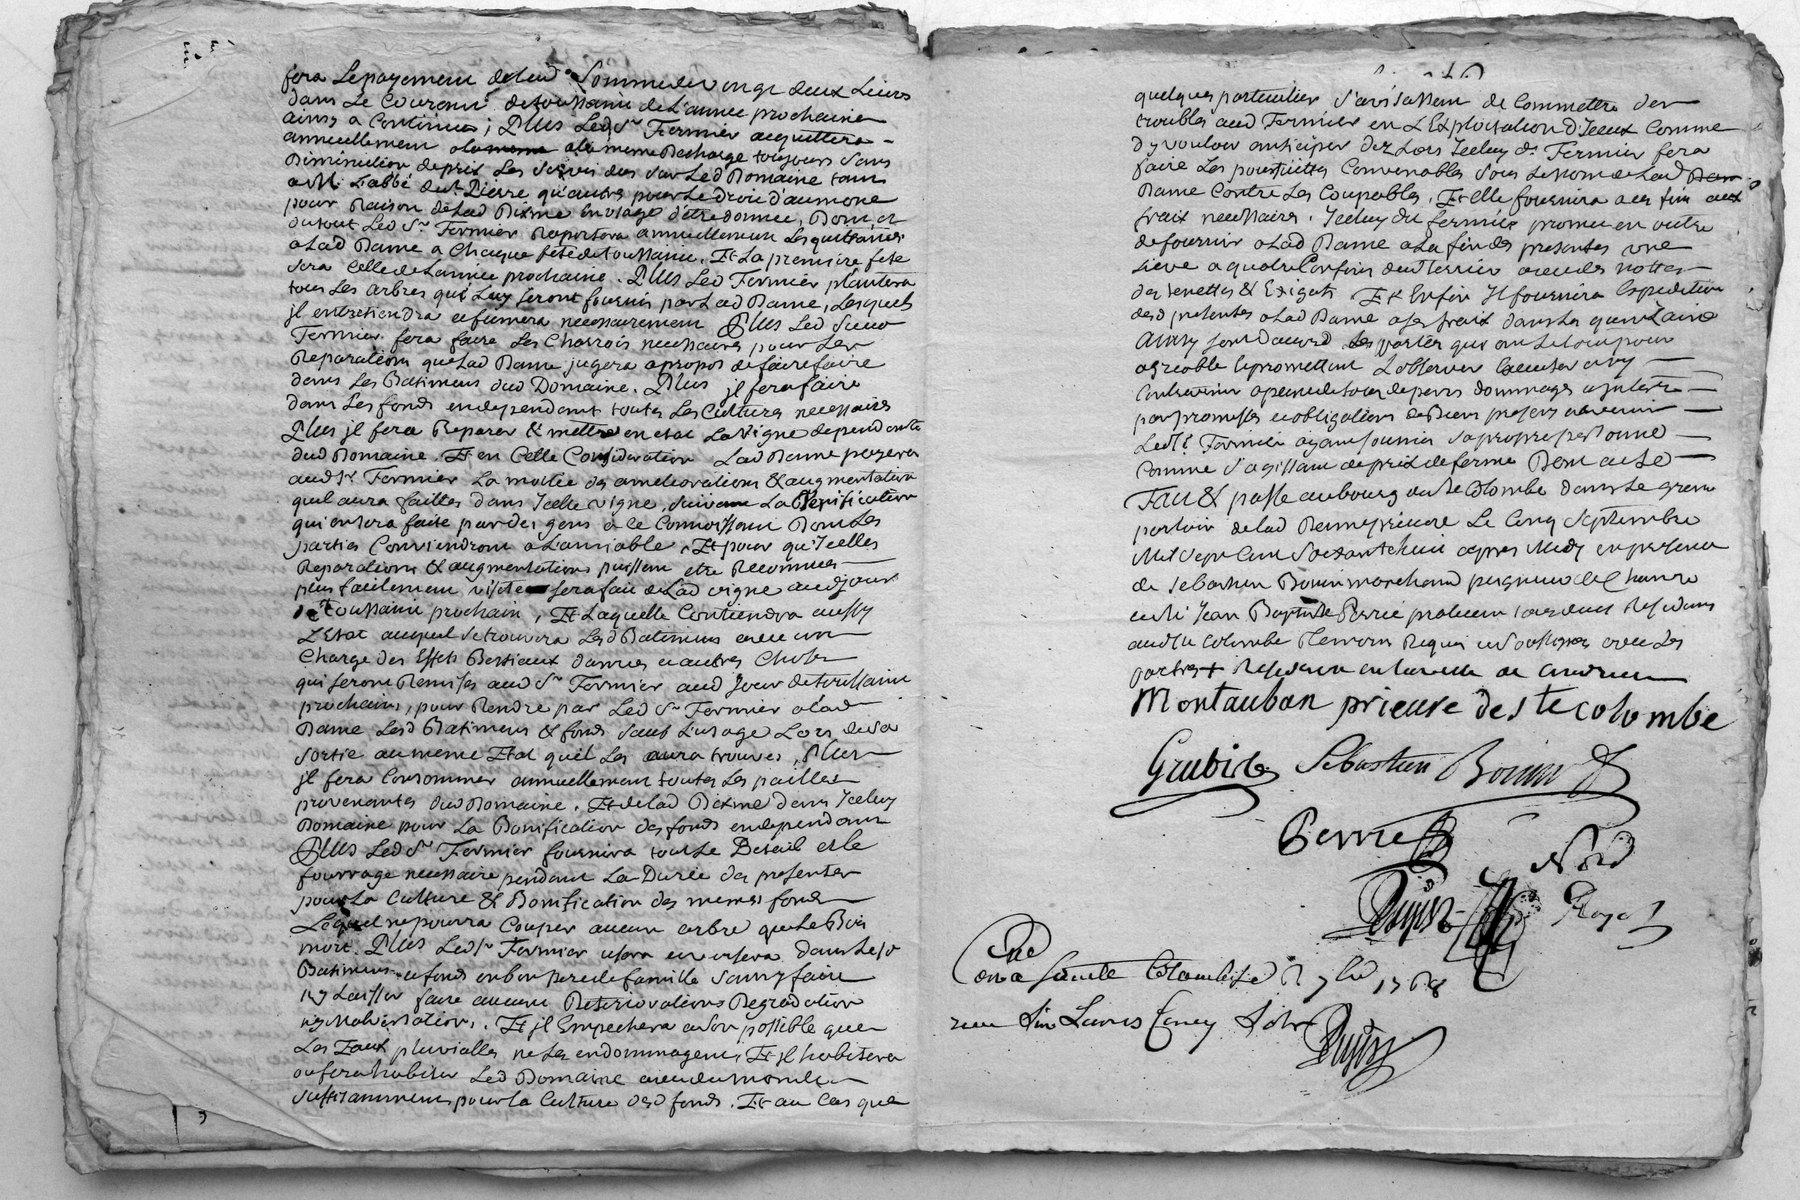 fera Lepayement delad Somme de vingt deux Livres
dans Le Courant detoussaint de L'année prochaine
ainsy a Continuer ; Plus Led Sr Fermier acquittera
annuellement ala meme Decharge toujours sans
Diminution deprix Les servis dus sur Led Domaine tant
a Mr L'abbé de St Pierre qu'autre pour Le droit d'aumone
pour Raison delad Dixme en usage d'etre donnée, Dont et
dutout Led Sr Fermier Raportera annuellement Les quittances
a Lad Dame a Chaque fête detoussaint. Et La premiere fete
sera Celle de Lannée prochaine. Plus Led Fermier plantera
tous Les arbres qui Luy seront fournis par Lad Dame, Lesquels
jl entretiendra et fumera necessairement Plus Led Sieur
Fermier fera faire Les Charrois necessaires pour Les
Reparations que Lad Dame jugera apropos de faire faire
dans Les Batimens dud Domaine. Plus jl fera faire
dans Les fonds endependant toutes Les Cultures necessaires
Plus jl fera Reparer & mettre en etat La Vigne dependante
dud Domaine. Et en Celle Consideration Lad Dame payera
aud Sr Fermier La moitié des ameliorations & augmentations
quil aura faittes dans Jcelle vigne, suivant La Verification
qui en sera faite par des gens a ce Connoissant Dont Les
parties Conviendront a L'amiable, Et pour qu'Jcelles
Reparations & augmentations puissent etre Reconnues
plus facilement visite sera fait de Lad vigne aud jour
de toussaint prochain, Et Laquelle Contiendra aussy
L'Etat auquel se trouvera Lesd Batimens avec un
Charge des Effets Bestiaux danrées et autres Choses
qui seront Remises aud Sr Fermier aud Jour de toussaint
prochain, pour Rendre par Led Sr Fermier a Lad
Dame Lesd Batimens & fonds sauf L'usage Lors de sa
sortie au meme Etat quil Les aura trouvés, Plus
jl fera Consommer annuellement toutes Les pailles
provenantes dud Domaine. Et de lad Dixme dans Jceluy
Domaine pour La Bonification des fonds endependant
Plus Led Sr Fermier fournira tout Le Betail et le
fourrage necessaire pendant La Durée des presentes
pour La Culture & Bonification des memes fonds
Lequel ne pourra Couper aucun arbre que Le Bois
mort. Plus Led Sr Fermier usera dans Lesd
Batimens et fonds en bon pere de famille sans y faire
ny Laisser faire aucune Deteriorations Degradation
ny Malversations. Et jl Empechera a son possible que
Les Eaux pluvialles ne Les endommagent, Et jl habitera
ou fera habiter Led Domaine avec du monde
suffisamment pour La Culture desd fonds. Et au Cas que
quelques particulier s'avisassent de Commettre des
troubles aud Fermier en L'Exploitation d'Jceux Comme
d'y vouloir anticiper dez Lors Jceluy Sr Fermier fera
faire Les poursuittes Convenables sous Le nom de Lad
Dame Contre Les Coupables. Et elle fournira a ces fins aux
fraix necessaires. Jceluy Sr fermier promet en outre
de fournir a Lad Dame a La fin des presentes une
Lieve a quatre Confins du Terrier avec des nottes
des tenettes & Exigats Et Enfin Jl fournira Expedition
des presentes a Lad Dame a ses frais dans La quinzaine
Ainsy sont d'accord Les parties qui ont Le tout pour
agreable Le promettant L'observer
Contrevenir a peine de tous depens dommages a Jnterets
par promesses et obligations de Biens presens et avenir
Led Sr Fermier ayant soumis sa propre personne
Comme s'agissant de prix de ferme Dont acte
Fait & passé au bourg de Ste Colombe dans Le grand
parloir de Lad Dame prieure Le Cinq Septembre
Mil sept Cent soixante huit apres Midy en presence
de Sebastien Bouin marchand peigneur de Chanvre
et de Sr Jean Baptiste Perrié praticien tous deux Residans
aud Ste Colombe Temoins Requis et soussignés avec Les
parties +
Montauban prieure de ste colombe
Grubis Sebastien Bouin
Perrié
Nord
Dugier
Royet
Con̄e a Sainte Colombe Le 7bre 1768
Dugier